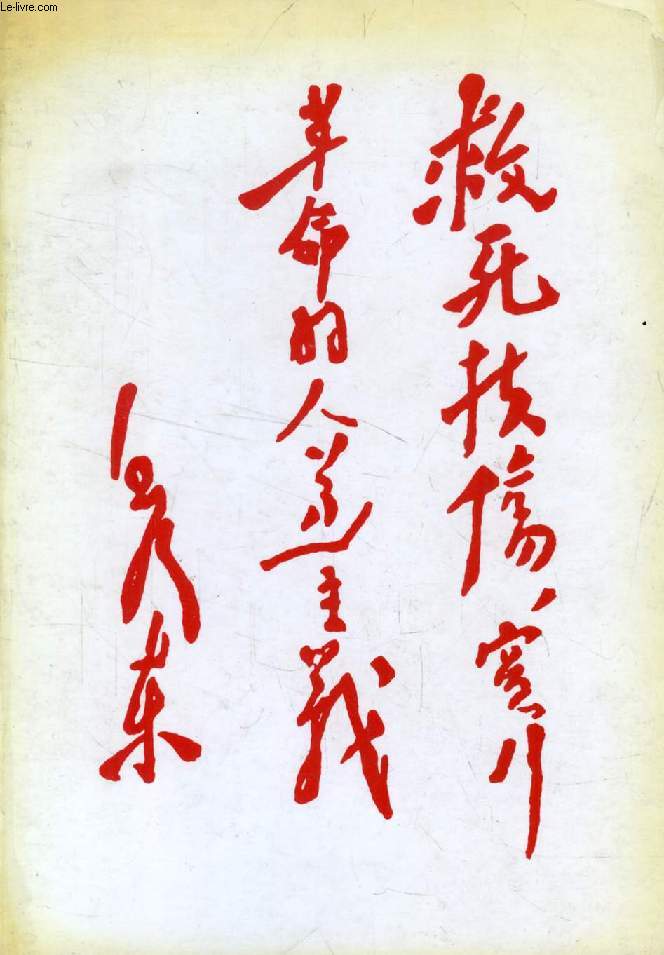 Le-livre.com
救死扶傷、實行
革命的人道主義
毛泽东